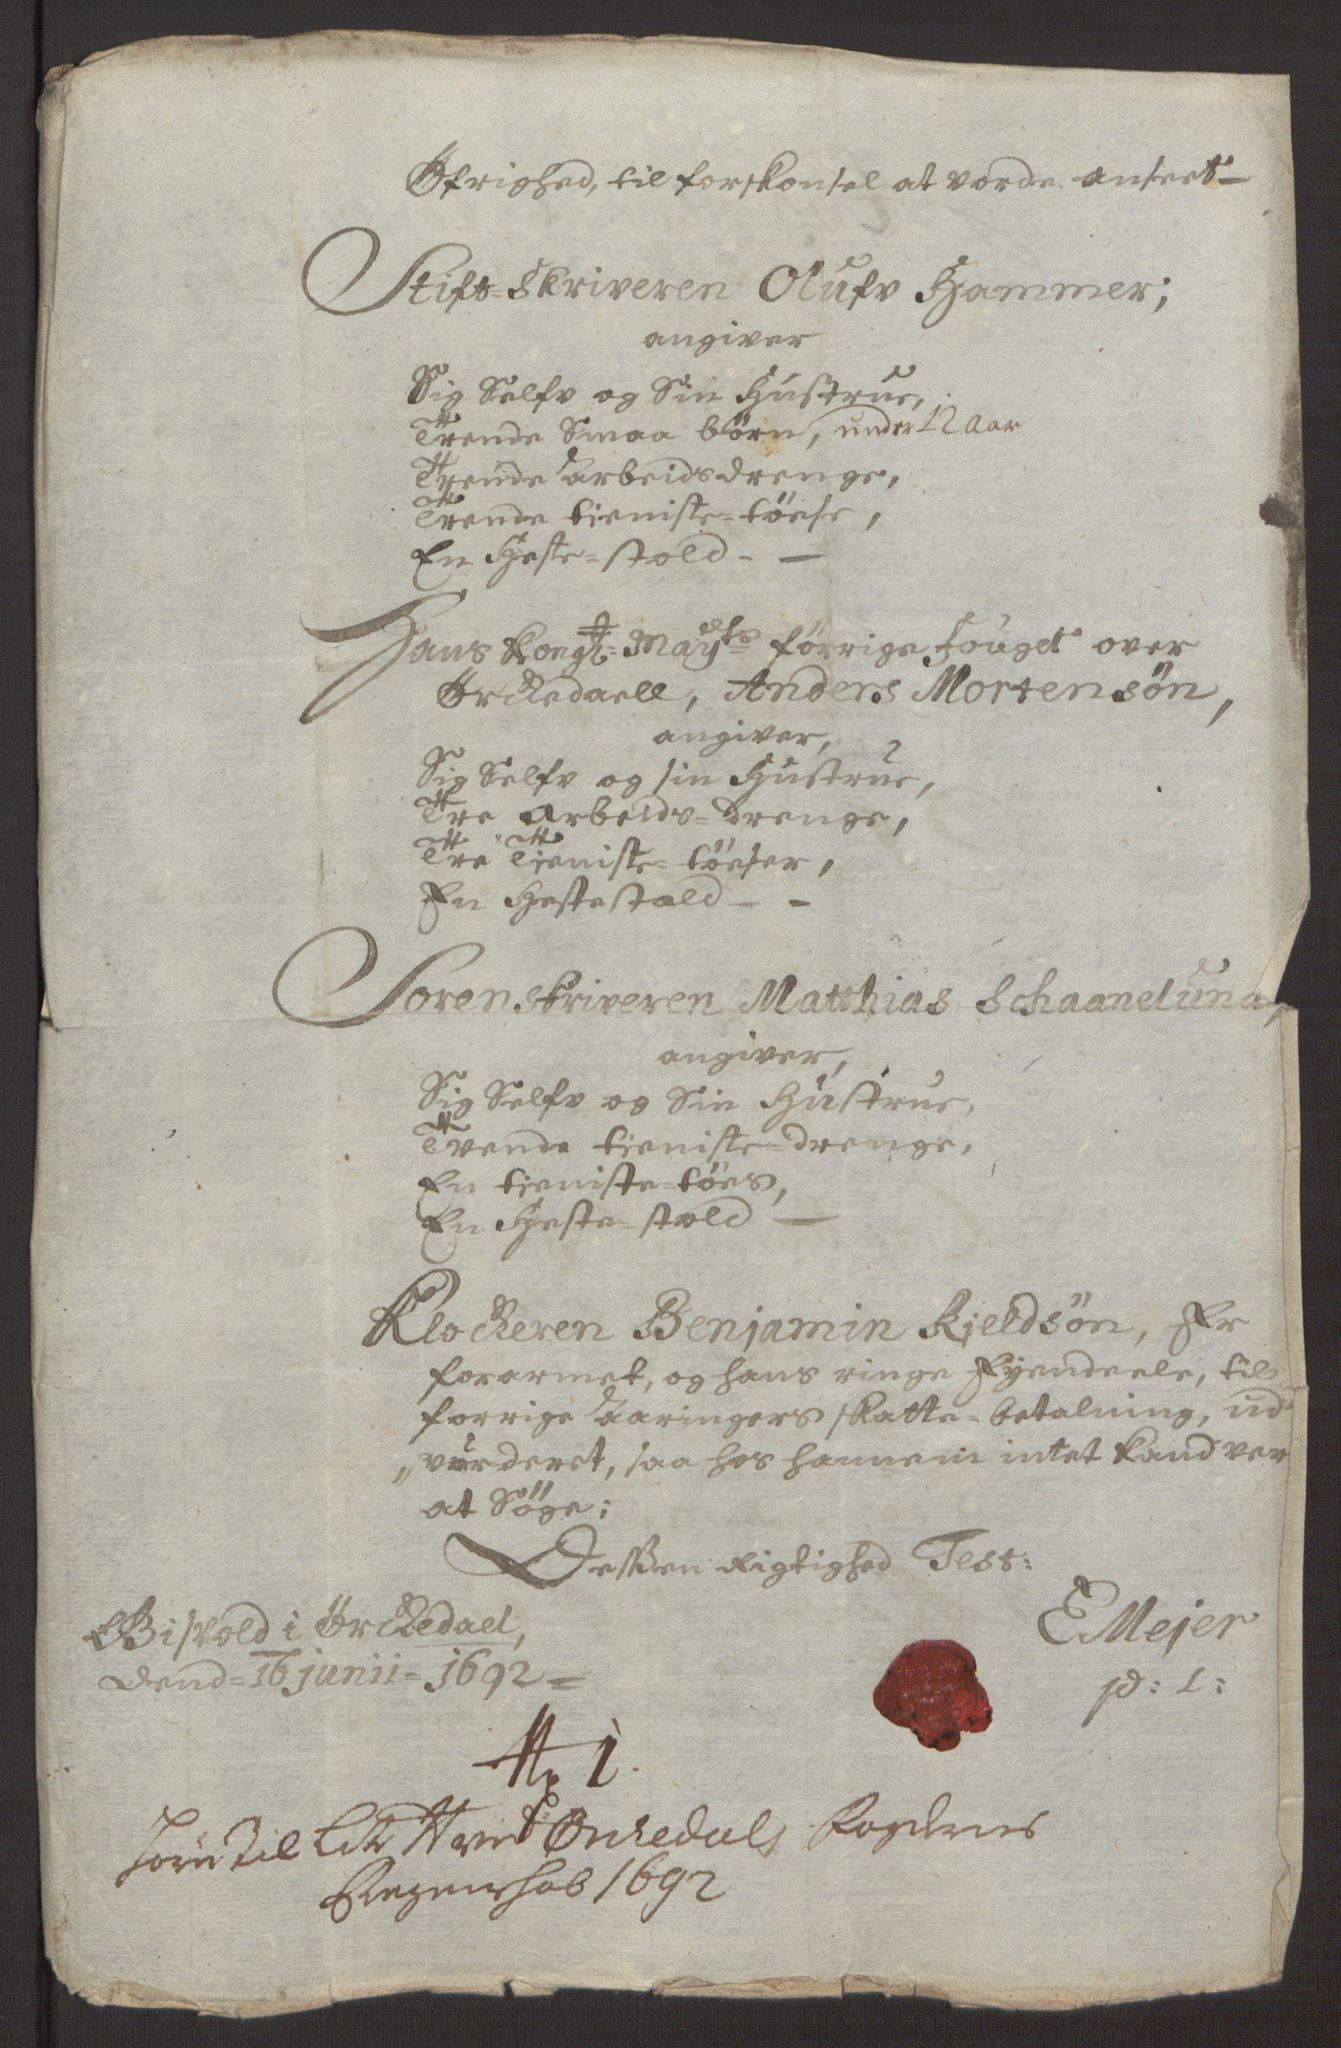 Øfrighed, til forskonsel at vorde anseet
Stift-Skriveren Olufv Hjammer;
angiver
Sig Selfv og Sin Hustrue,
Trende Smaa børn, under 12 Aar
Trende Arbeids drenge,
Trende tieniste-tøese,
En Heste-stald
Hans Kongl: Mayts forrige fouget over
Ørckedaell, Anders Mortensøn,
angiver,
Sig Selfv og sin Hustrue,
Tre Arbeids-drenge,
Tre Tieniste-tøeser,
En Hestestald
Sorenskriveren Matthias Schaanelund,
angiver,
Sig Selfv og Sin Hustrue,
Tvende tieniste-drenge,
En tieniste-tøes,
En Heste-stald
Klockeren Benjamin Kjeldsøn, Er
forarmet, og hans ringe Eyendeele, til
forrige Aaringers skatte-betalning, ud
vurderet, saa hos hannem intet kand ver
at Søge:
Dessen Rigtighed Test:
Bisvold i Ørckedael,
dend 16 junii 1692
EMejer
No 1.
til Ørkedals fogderies
Regenschab 1692